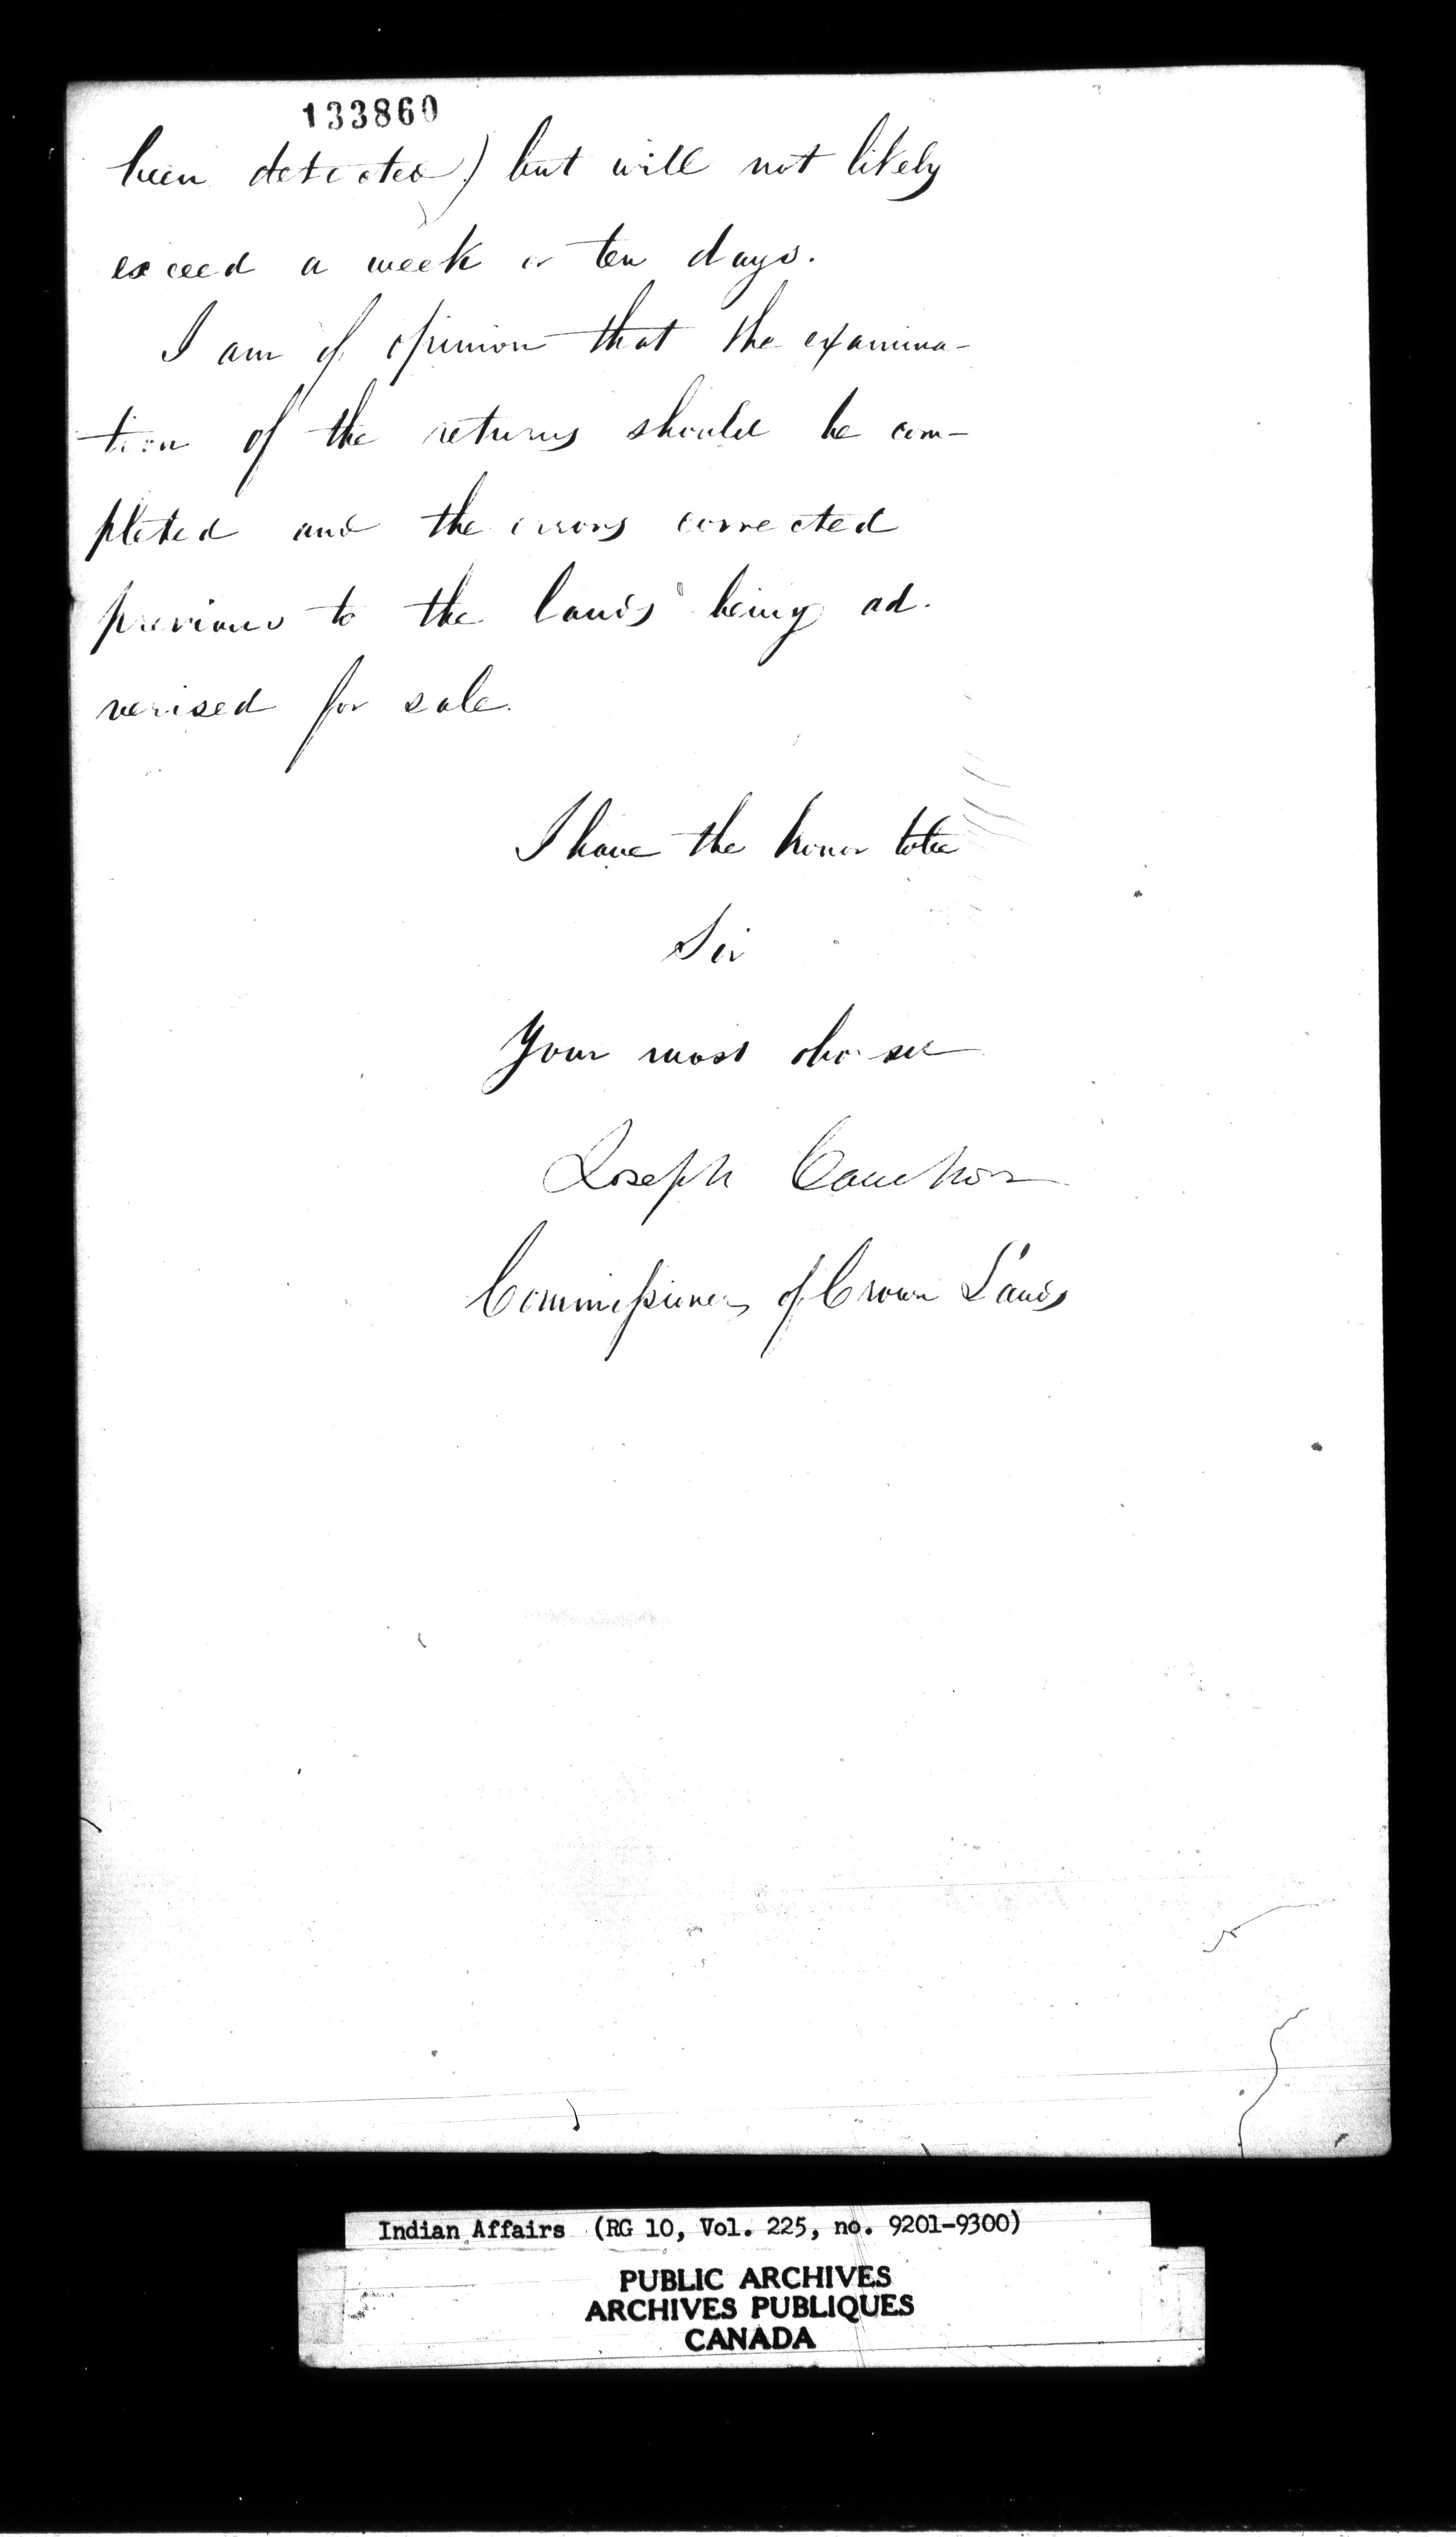 133860
been detected) but will not likely
exceed a week or ten days.
I am of opinion that the examina-
tion of the returns should be com-
pleted and the errors corrected
previous to the lands being ad-
verised for sale.
I have the honor to be
Sir
Your most obt ser
Joseph Cauchon
Commissioner of Crown Lands
Indian Affairs (RG 10, Vol. 225, no. 9201-9300)
PUBLIC ARCHIVES
ARCHIVES PUBLIQUES
CANADA